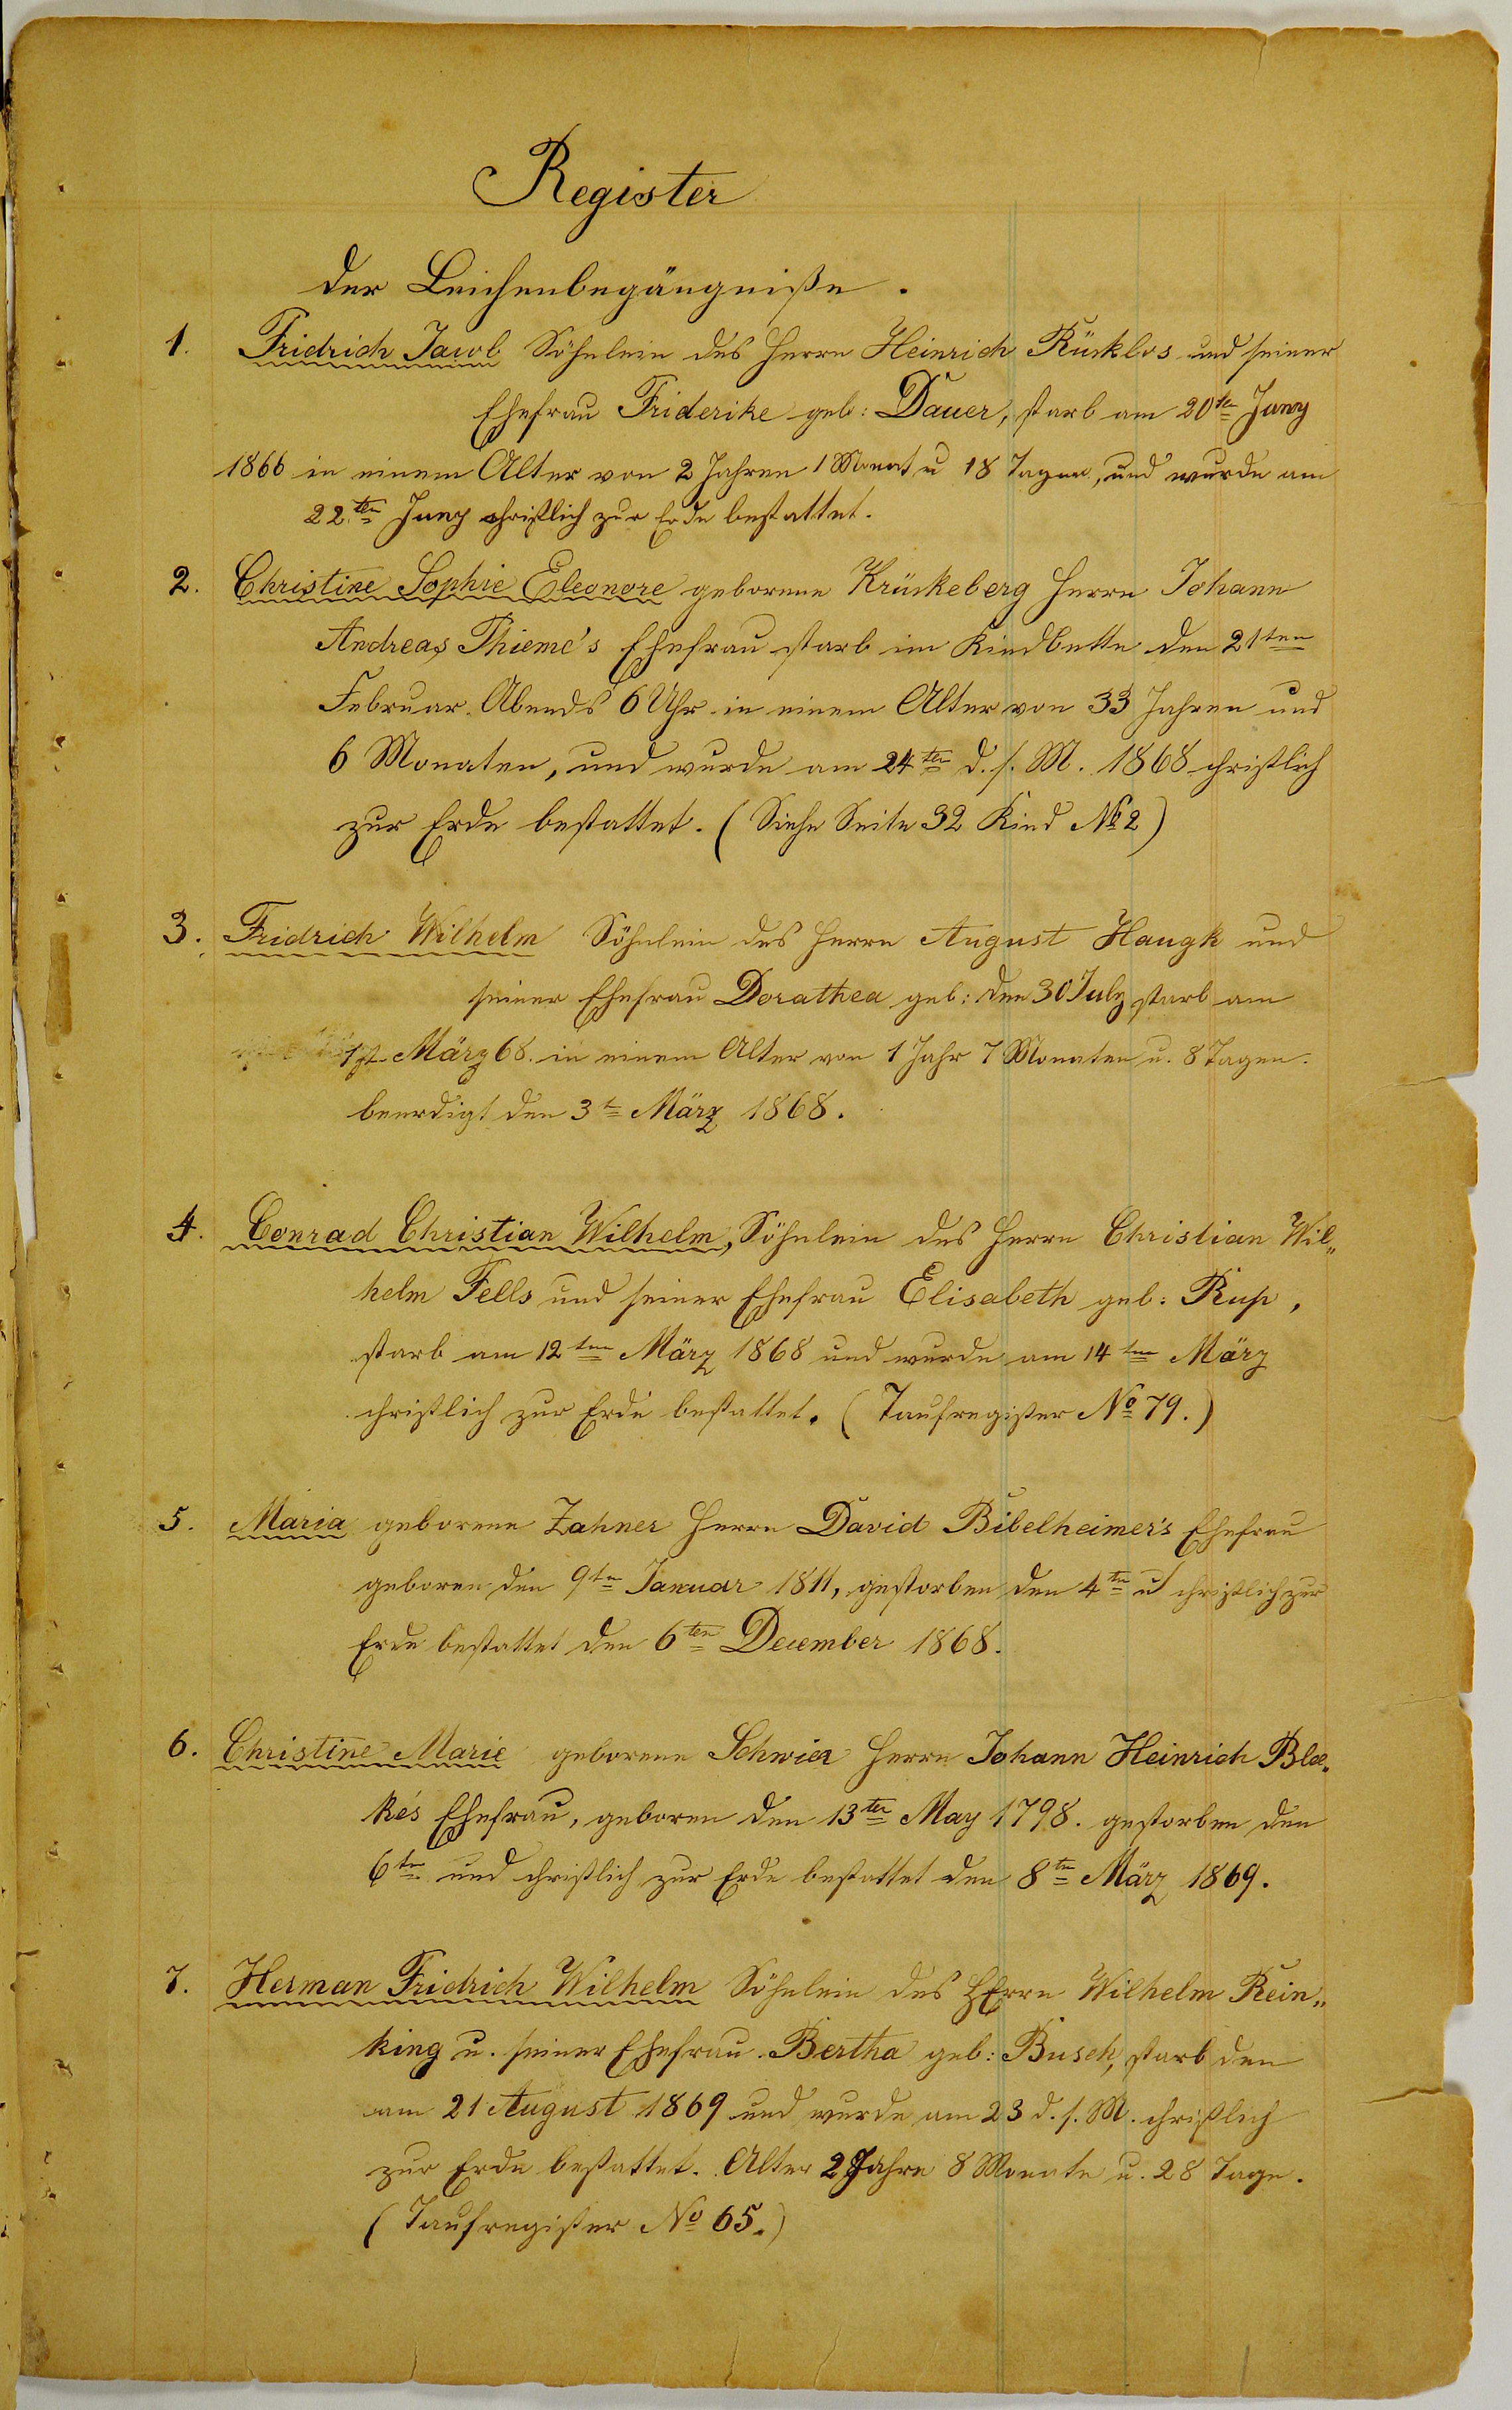 Register
der Leichenbegängniße.
1. Fridrich Jacob Söhnlein des Herrn Heinrich Rücklos und seiner
Ehefrau Friderike geb: Dauer, starb am 20ten Juny
1866 in einem Alter von 2 Jahren 1 Monat u 18 Tagen, und wurde am
22ten Juny christlich zur Erde bestattet.
2. Christine Sophie Eleonore geborene Krückeberg Herrn Johann
Andreas Thieme's Ehefrau starb im Kindbette den 21ten
Februar Abends 6 Uhr in einem Alter von 33 Jahren und
6 Monaten, und wurde am 24ten d. s. M. 1868 christlich
zur Erde bestattet. (Siehe Seite 32 Kind No 2)
3. Fridrich Wilhelm Söhnlein des Herrn August Haugk und
seiner Ehefrau Dorathea geb: den 30 July starb am
1st März 68. in einem Alter von 1 Jahr 7 Monaten u. 8 Tagen.
beerdigt den 3t März 1868.
4. Conrad Christian Wilhelm, Söhnlein des Herrn Christian Wil„
helm Fells und seiner Ehefrau Elisabeth geb: Rup,
starb am 12ten März 1868 und wurde am 14ten März
christlich zur Erde bestattet. (Taufregister No 79.)
5. Maria geborene Zahner Herrn David Bibelheimer's Ehefrau
geboren den 9ten Januar 1811, gestorben den 4ten u christlich zur
Erde bestattet den 6ten December 1868.
6. Christine Marie geborene Schwier Herrn Johann Heinrich
ke's Ehefrau, geboren den 13ten May 1798. gestorben den
6ten und christlich zur Erde bestattet den 8ten März 1869.
7. Herman Fridrich Wilhelm Söhnlein des HErrn Wilhelm Rein„
king u. seiner Ehefrau Bertha geb: Busch, starb den
am 21 August 1869 und wurde am 23 d. s. M. christlich
zur Erde bestattet. Alter 2 Jahre 8 Monate u. 28 Tage.
(Taufregister No 65.)